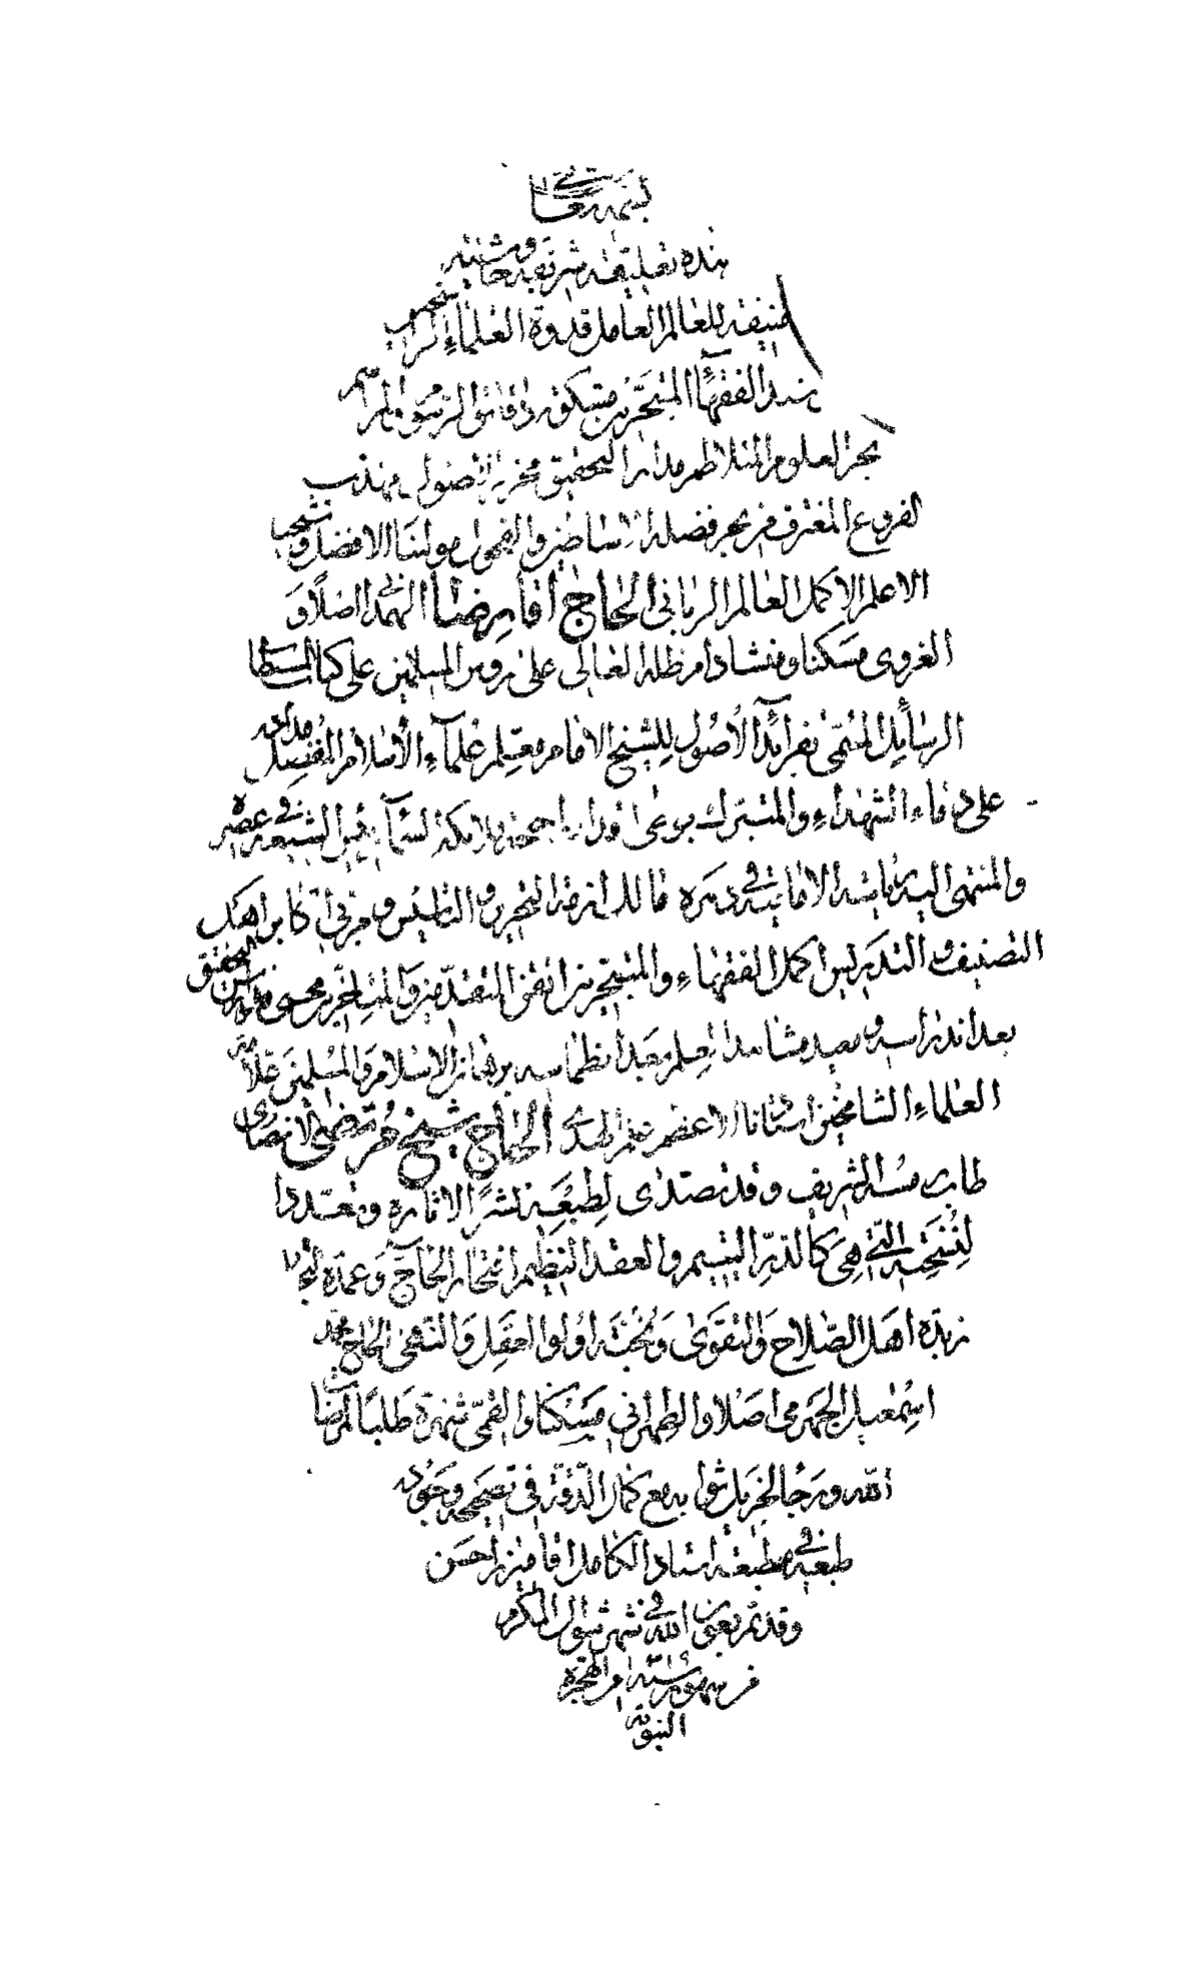 بسمه تعالى
هذه تعليقة شريفة وحاشية
منيفة للعالم العامل قدوة العلماء الراسخين
سند الفقهاء المتبحرين
بحر العلوم المتلاطم مدار التحقيق مخرب الأصول مهذب
الفروع المغترف من بحر فضله الأساطين والفحول مولينا الافضل وشيخنا
الاعلم الاكمل العالم الرباني الحاج اقا رضا الهمداني اصلا و
الغروي مسكنا ومنشا دام ظله العالي على رؤس المسلمين على كتاب المستطاب
الرسائل المسمى بفرائد الأصول للشيخ الامام معلم علماء الأسلام المفضل مداده
على دماء الشهداء والمتبرك بوطئ اقدامه اجنحة ملائكة السماء رئيس الشيعة في عصره
والمنتهى اليه رياسة الامامية في دهره مالك ازمة التحرير والتاسيس ومربي اكابر اهل
التصنيف والتدريس اكمل الفقهاء والمتبحرين اتقن المتقدمين والمتاخرين محيي التحقيق
بعد اندراسه ومعيد العلم بعد انطماسه برهان الاسلام والمسلمين علامة
العلماء الشامخين استادنا الاعظم علم الهدى الحاج شيخ مرتضى الانصاري
طاب رمسه الشريف وقد تصدى لطبعه نشرا لاثاره
لنسخته التي هي كالدر اليتيم والعقد النظيم افتخار الحاج وعمدة
زبدة اهل الصلاح والتقوى ونخبة اولو العقل والنهى الحاج محمد
اسمعيل الجهرمي اصلا والطهراني مسكنا والقمي شهرة طلبا لمرضات
الله ورجا لجزيل ثوابه مع كمال الدقة في تصحيحه وجودة
طبعه في مطبعة استاد الكامل اقا ميرزا حسن
وقد تم بعون الله في شهر شوال المكرم
من شهور سنة من الهجرة
النبوية